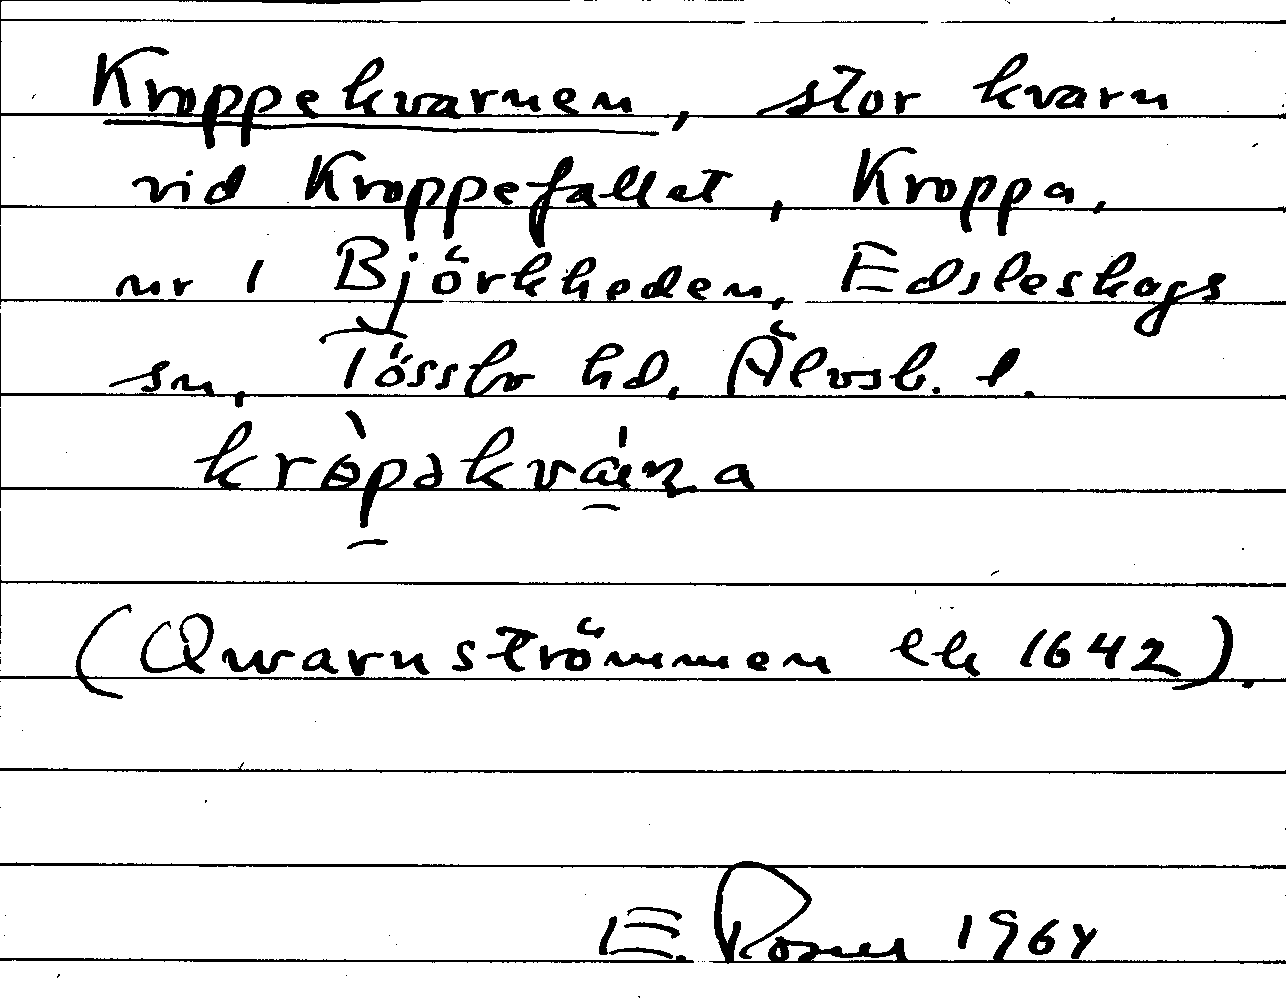 Kroppekvarnen, stor kvarn
vid Kroppefallet, Kroppa,
nr 1 Björkheden, Edsleskogs
sn, Tössbo hd, Älvsb. l.
(Qwarnströmmen lk 1642).
E. 1964